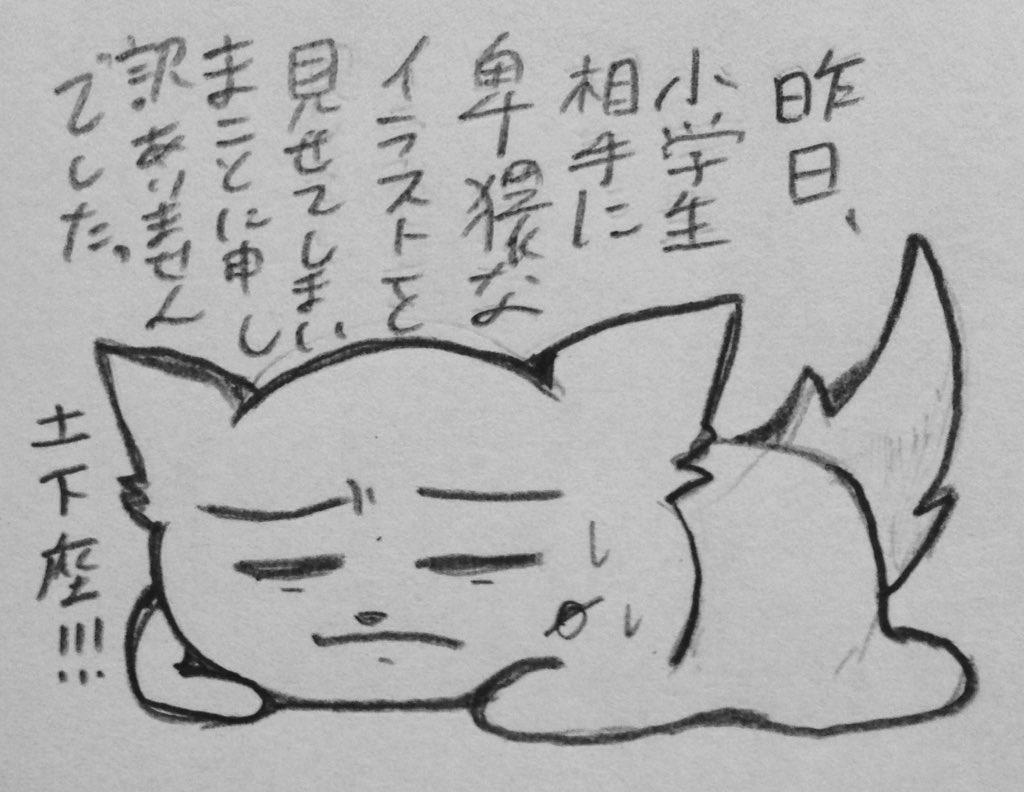 昨日、
小学生
相手に
卑猥な
イラストを
見せてしまい
まことに申し
訳ありません
でした。
土下座!!!